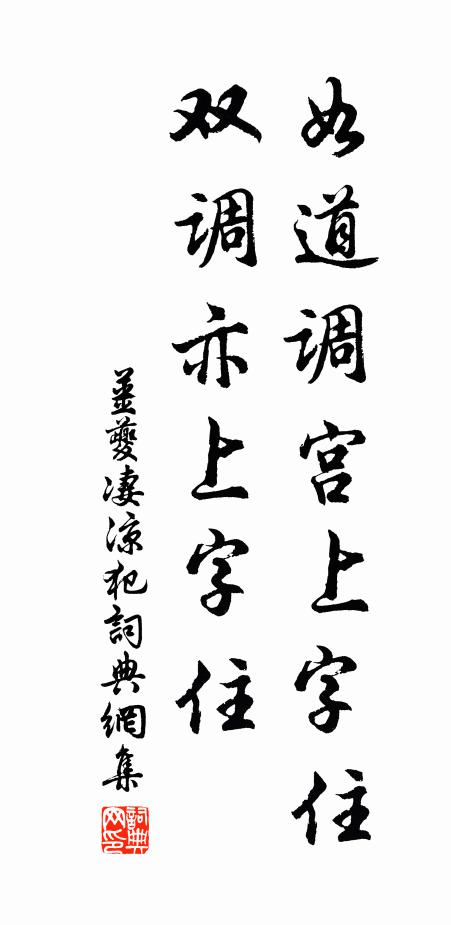 如道调宫上字住
双调亦上字住
姜夔凄凉犯詞典網集
詞典网印